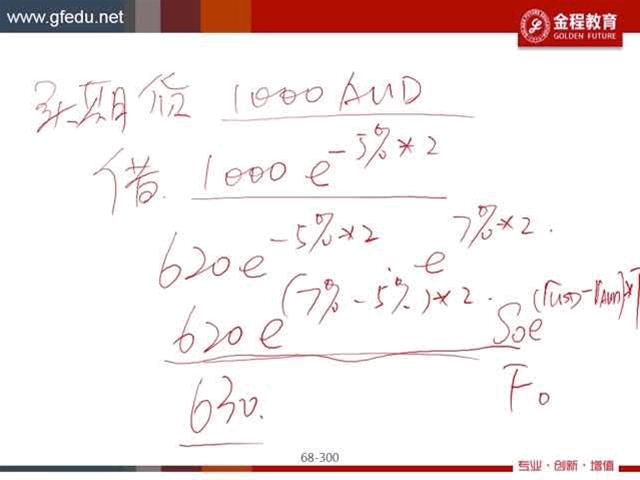 www.gfedu.net
金程教育
GOLDEN FUTURE
买期货 1000 AUD
借 1000 e^-5%*2
620 e^-5%*2 · e^7%*2.
620 e^(7%-5%)*2. S₀e^(rUSD-rAUD)*T
630. F₀
68-300
专业·创新·增值